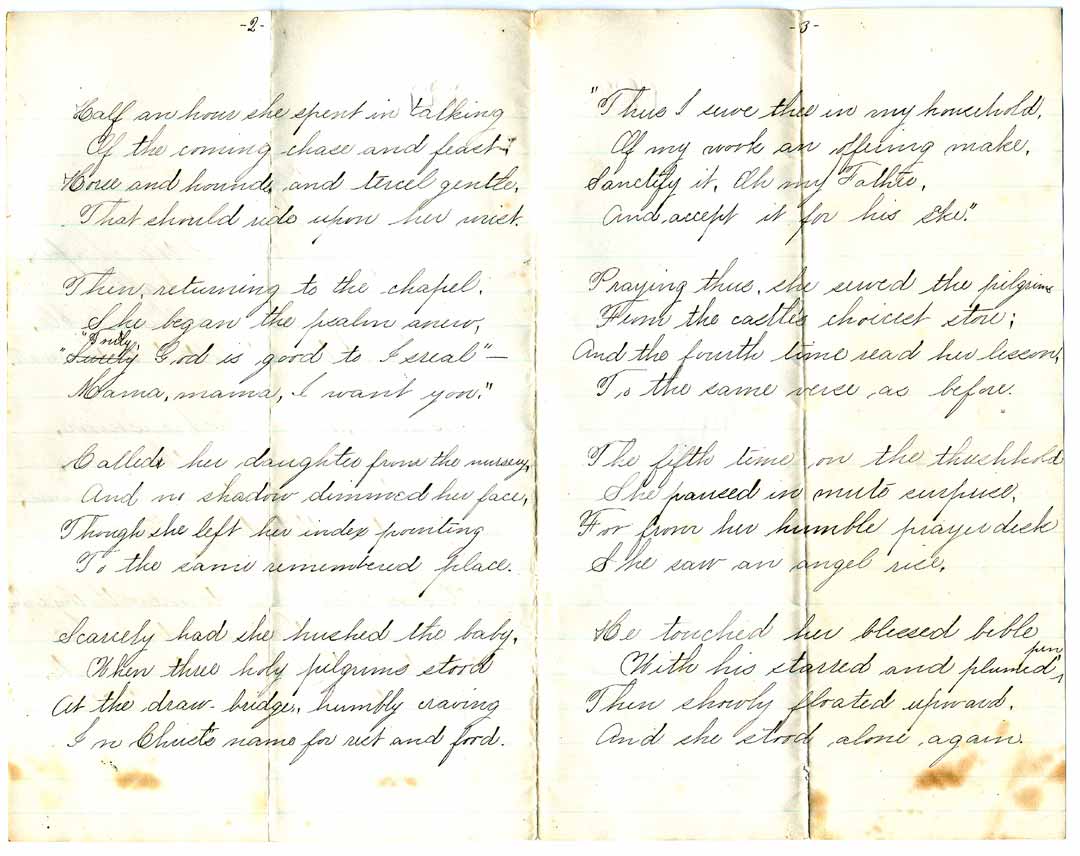 -2-
Half an hour she spent in talking
Of the coming chase and feast;
Horse and hounds, and tercel gentle,
That should ride upon her wrist.
Then, returning to the chapel,
She began the psalm anew,
"Truly,
"Surely God is good to Isreal"—
Mama, mama, I want you."
Called her daughter from the nursery,
And no shadow dimmed her face,
Though she left her index pointing
To the same remembered place.
Scarcely had she hushed the baby,
When three holy pilgrims stood
At the draw-bridge, humbly craving
In Christs name for rest and food.
-3-
"Thus I serve thee in my household,
Of my work an offering make,
Sanctify it, Oh my Father,
And accept it for his sake."
Praying thus, she served the pilgrims
From the castles choicest store;
And the fourth time read her lesson,
To the same verse as before.
The fifth time on the threshhold
She paused in mute surprise,
For from her humble prayer desk
She saw an angel rise,
He touched her blessed bible
pen
With his starred and plumed,
Then showly floated upward,
And she stood alone again.